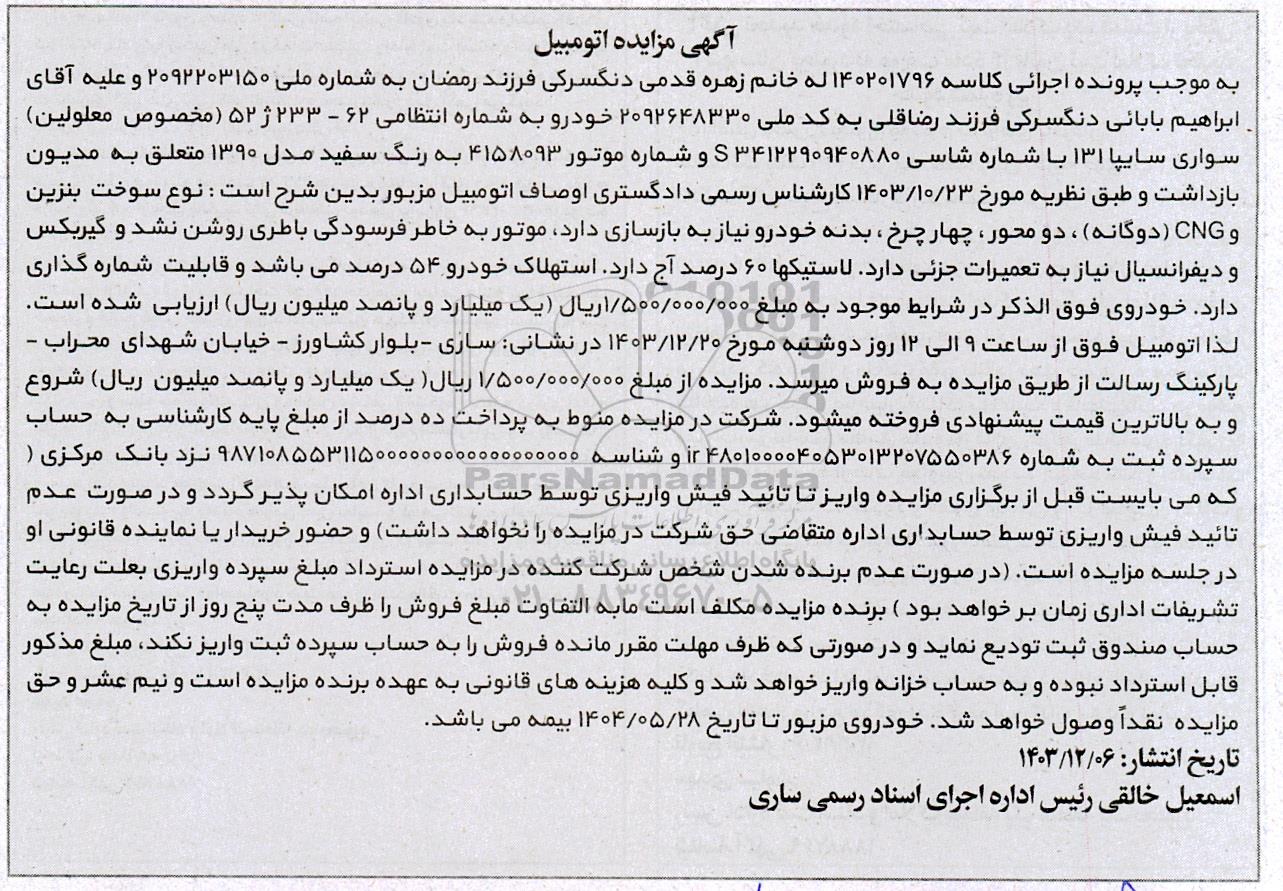 آگهی مزایده اتومبیل
به موجب پرونده اجرائی کلاسه ۱۴۰۲۰۱۷۹۶ له خانم زهره قدمی دنگسرکی فرزند رمضان به شماره ملی ۲۰۹۲۲۰۳۱۵۰ و علیه آقای
ابراهیم بابائی دنگسرکی فرزند رضاقلی به کد ملی ۲۰۹۲۶۴۸۳۳۰ خودرو به شماره انتظامی ۶۲ - ۲۳۳ ژ ۵۲ (مخصوص معلولین)
سواری سایپا ۱۳۱ با شماره شاسی S ۳۴۱۲۲۹۰۹۴۰۸۸۰ و شماره موتور ۴۱۵۸۰۹۳ به رنگ سفید مدل ۱۳۹۰ متعلق به مدیون
بازداشت و طبق نظریه مورخ ۱۴۰۳/۱۰/۲۳ کارشناس رسمی دادگستری اوصاف اتومبیل مزبور بدین شرح است : نوع سوخت بنزین
و CNG (دوگانه) ، دو محور ، چهار چرخ ، بدنه خودرو نیاز به بازسازی دارد، موتور به خاطر فرسودگی باطری روشن نشد و گیربکس
و دیفرانسیال نیاز به تعمیرات جزئی دارد. لاستیکها ۶۰ درصد آج دارد. استهلاک خودرو ۵۴ درصد می باشد و قابلیت شماره گذاری
دارد. خودروی فوق الذکر در شرایط موجود به مبلغ ۱/۵۰۰/۰۰۰/۰۰۰ریال (یک میلیارد و پانصد میلیون ریال) ارزیابی شده است.
لذا اتومبیل فوق از ساعت ۹ الی ۱۲ روز دوشنبه مورخ ۱۴۰۳/۱۲/۲۰ در نشانی: ساری -بلوار کشاورز - خیابان شهدای محراب -
پارکینگ رسالت از طریق مزایده به فروش میرسد. مزایده از مبلغ ۱/۵۰۰/۰۰۰/۰۰۰ ریال( یک میلیارد و پانصد میلیون ریال) شروع
و به بالاترین قیمت پیشنهادی فروخته میشود. شرکت در مزایده منوط به پرداخت ده درصد از مبلغ پایه کارشناسی به حساب
سپرده ثبت به شماره ir ۴۸۰۱۰۰۰۰۴۰۵۳۰۱۳۲۰۷۵۵۰۳۸۶ و شناسه ۹۸۷۱۰۸۵۵۳۱۱۵۰۰۰۰۰۰۰۰۰۰۰۰۰۰۰۰۰۰ نزد بانک مرکزی (
که می بایست قبل از برگزاری مزایده واریز تا تائید فیش واریزی توسط حسابداری اداره امکان پذیر گردد و در صورت عدم
تائید فیش واریزی توسط حسابداری اداره متقاضی حق شرکت در مزایده را نخواهد داشت) و حضور خریدار یا نماینده قانونی او
در جلسه مزایده است. (در صورت عدم برنده شدن شخص شرکت کننده در مزایده استرداد مبلغ سپرده واریزی بعلت رعایت
تشریفات اداری زمان بر خواهد بود ) برنده مزایده مکلف است مابه التفاوت مبلغ فروش را ظرف مدت پنج روز از تاریخ مزایده به
حساب صندوق ثبت تودیع نماید و در صورتی که ظرف مهلت مقرر مانده فروش را به حساب سپرده ثبت واریز نکند، مبلغ مذکور
قابل استرداد نبوده و به حساب خزانه واریز خواهد شد و کلیه هزینه های قانونی به عهده برنده مزایده است و نیم عشر و حق
مزایده نقداً وصول خواهد شد. خودروی مزبور تا تاریخ ۱۴۰۴/۰۵/۲۸ بیمه می باشد.
تاریخ انتشار: ۱۴۰۳/۱۲/۰۶
اسمعیل خالقی رئیس اداره اجرای اسناد رسمی ساری
ParsNamadData
۰۲۱-۸۸۳۴۹۶۷۰-۵